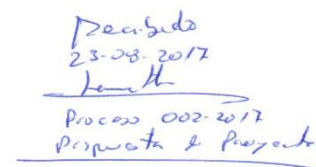 Recibido
23-08-2017
Proceso 002-2017
Propuesta & Proyecto